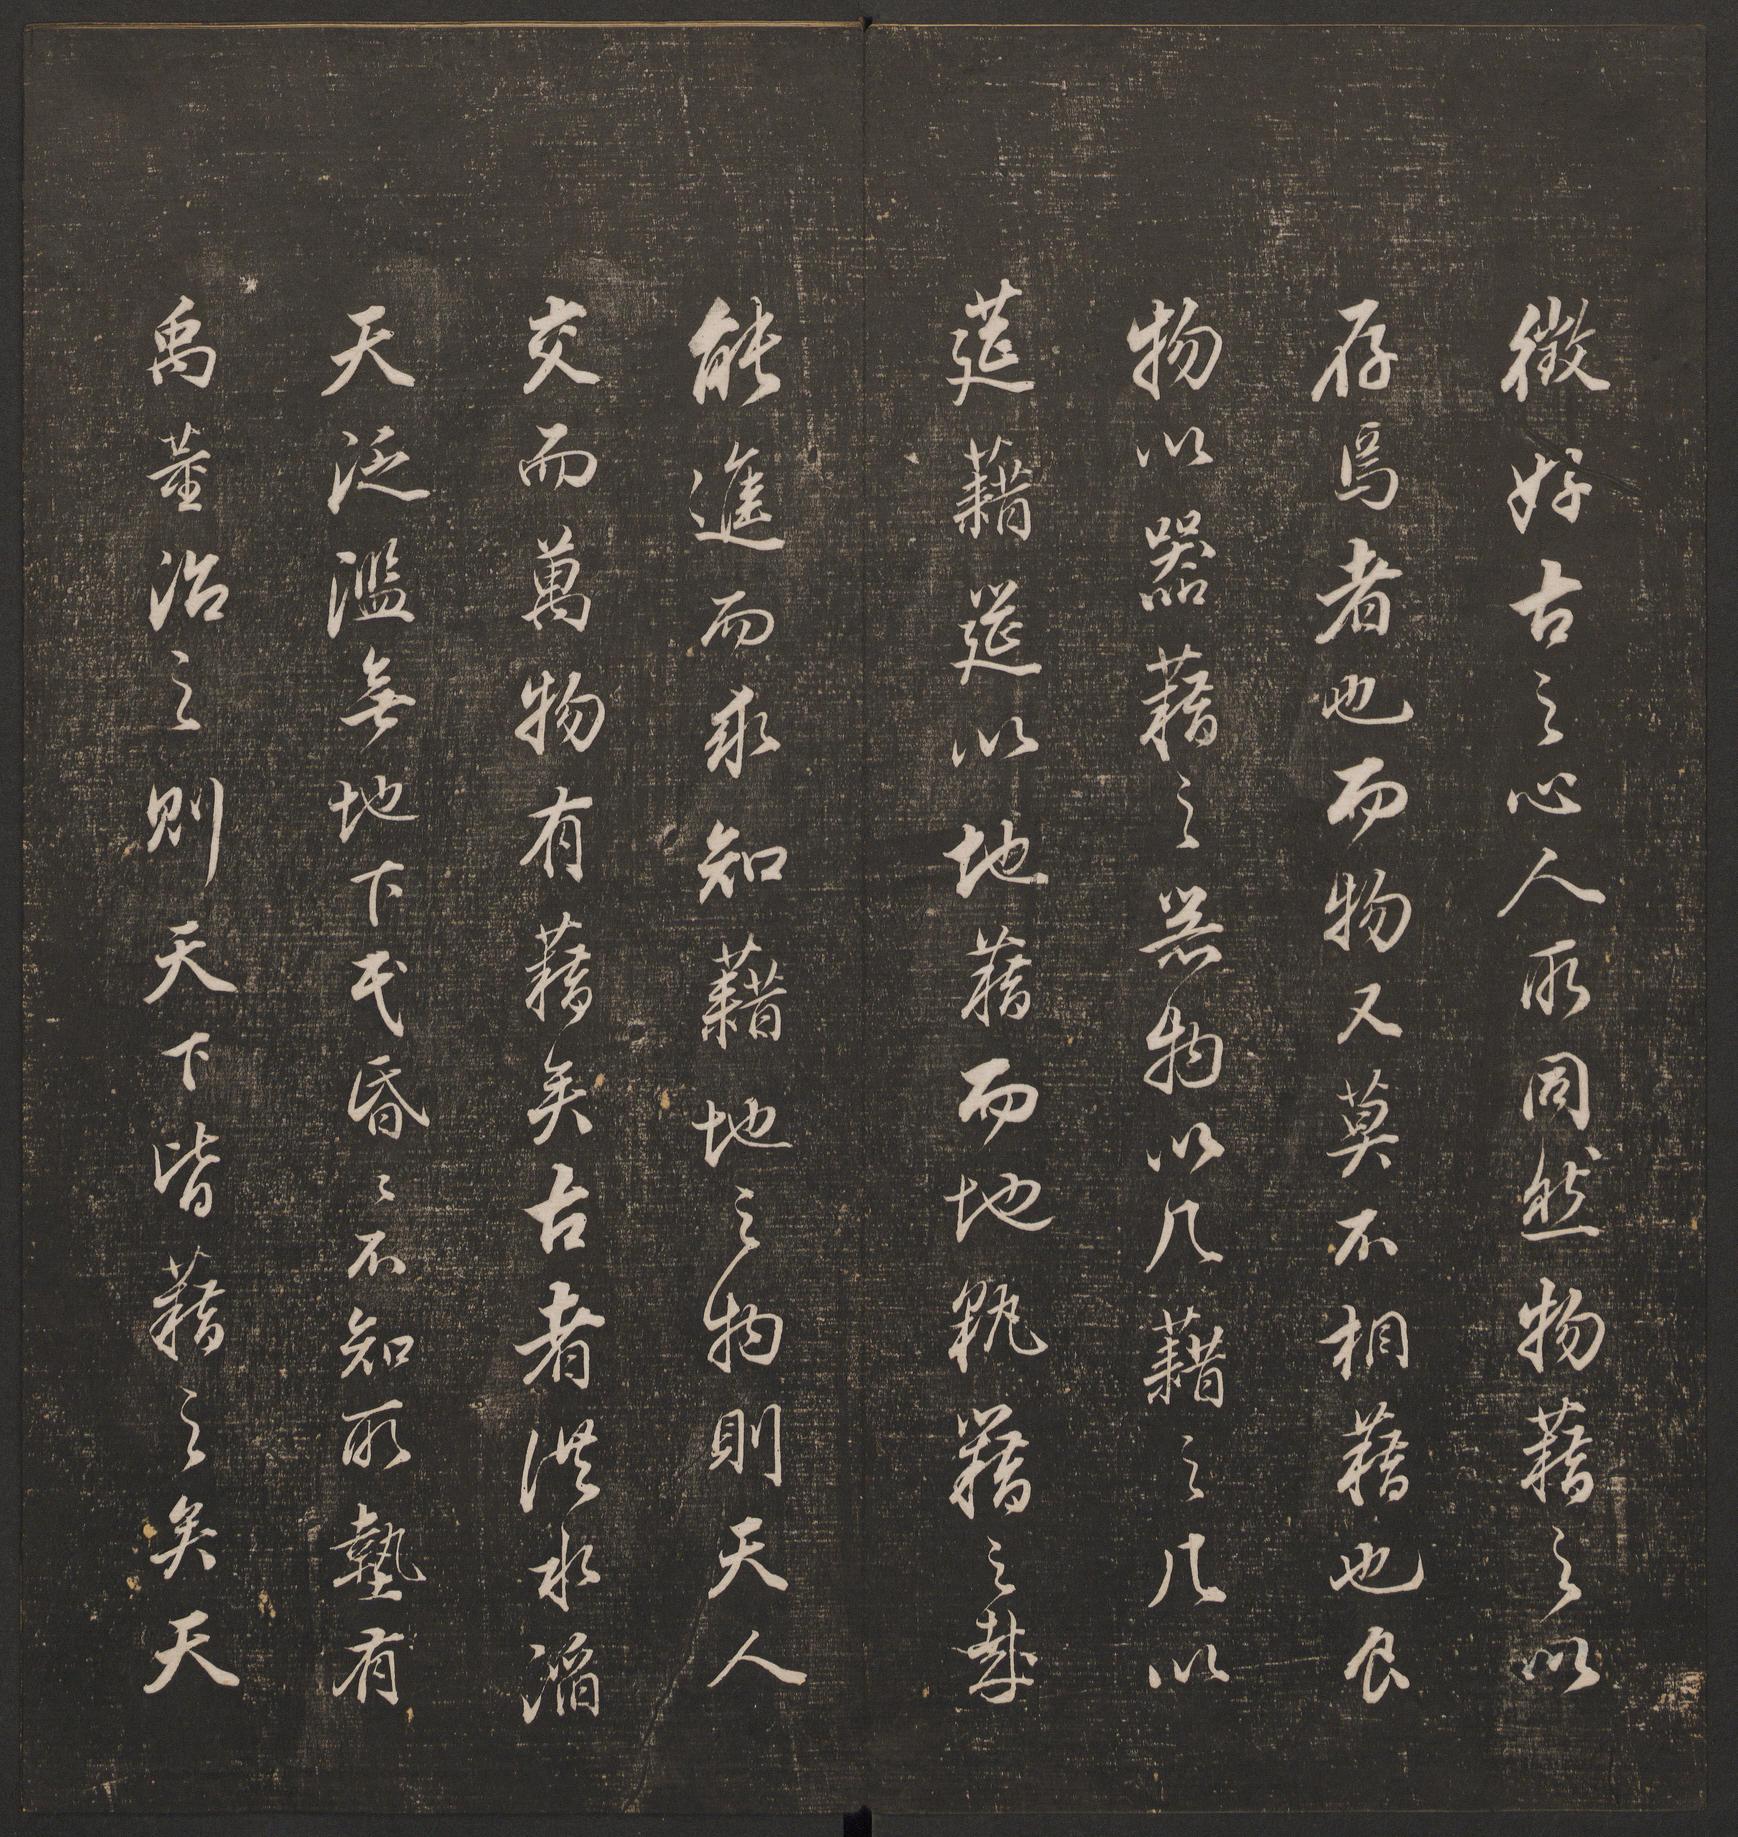 徵好古之心人所同然物藉之以
存焉者也而物又莫不相藉也食
物以器藉之器物以几藉之几以
筵藉筵以地藉而地孰藉之孰
能進而求知藉地之物則天人
交而萬物有藉矣古者洪水滔
天泛濫無地下民昏〻不知所墊有
禹董治之則天下皆藉之矣天